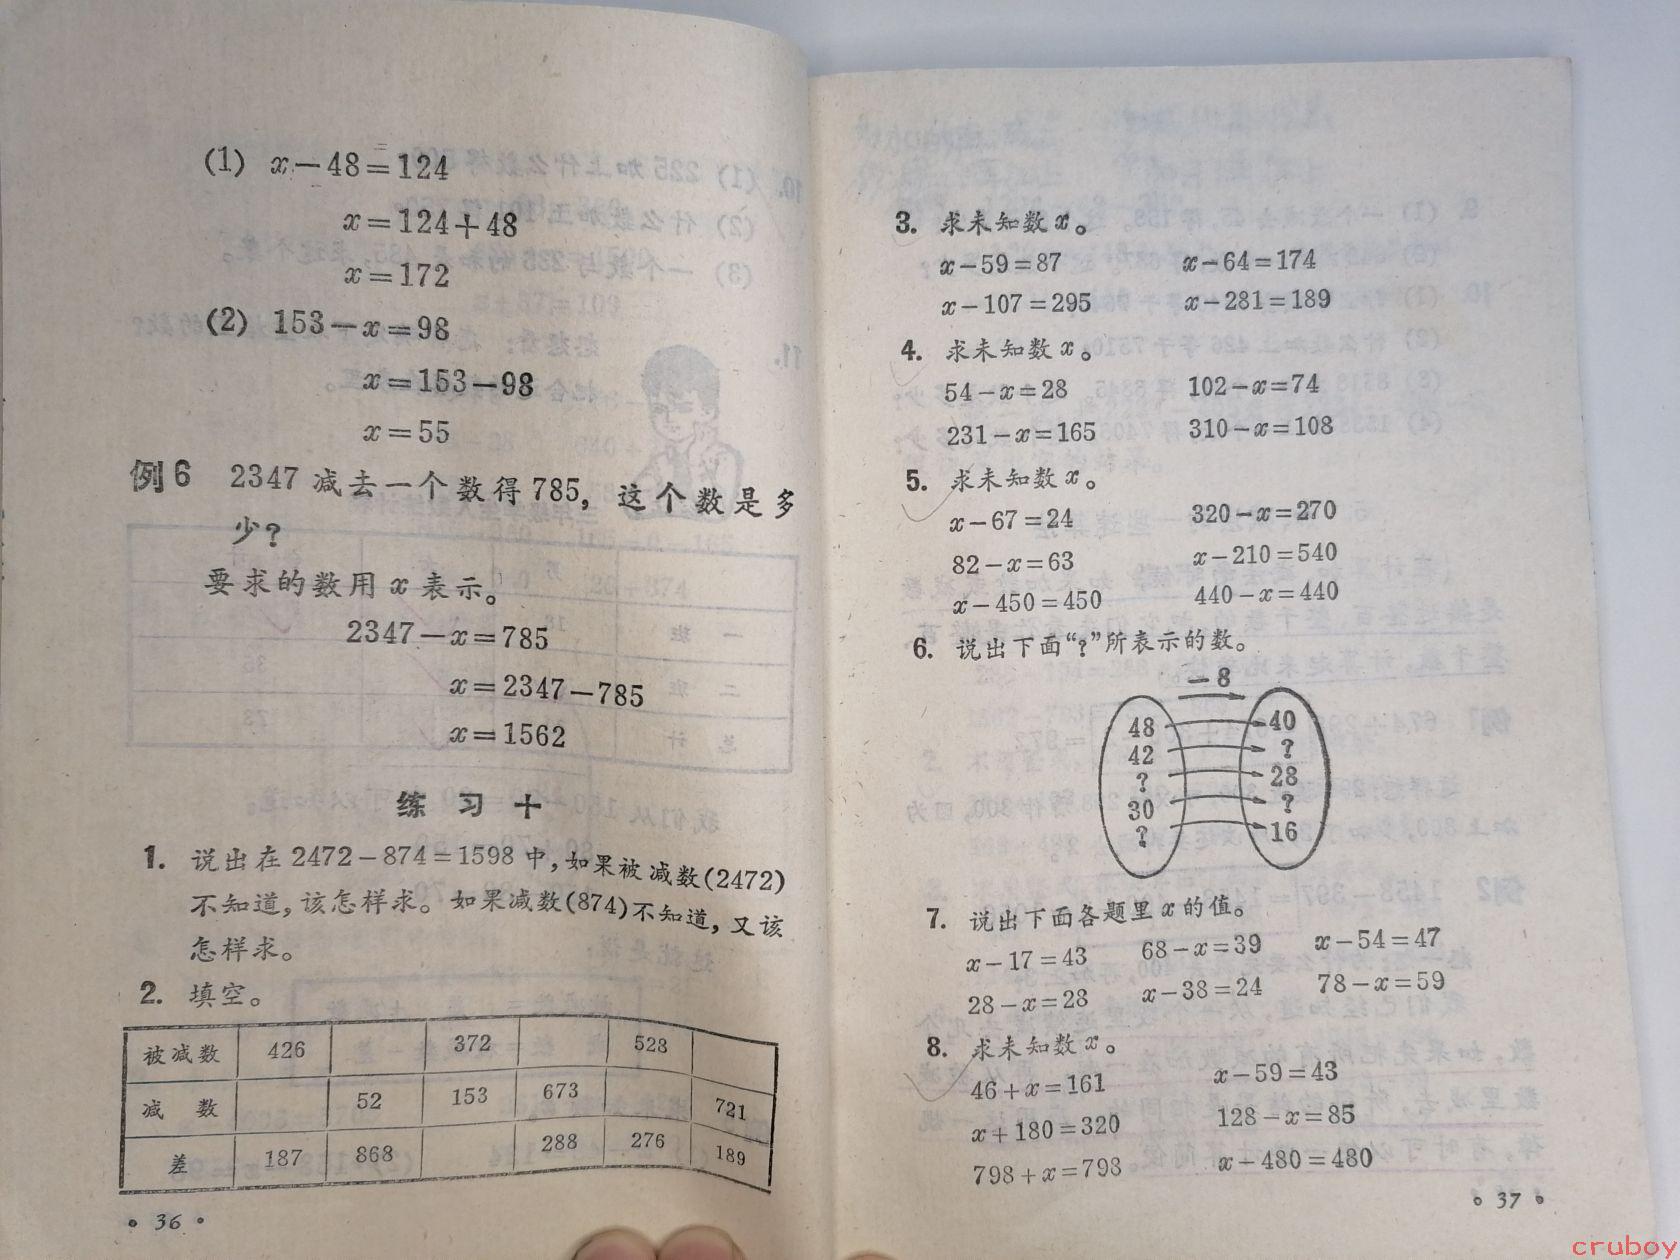 (1) x－48＝124
x＝124＋48
x＝172
(2) 153－x＝98
x＝153－98
x＝55
例6 2347 减去一个数得 785，这个数是多
少？
要求的数用 x 表示。
2347－x＝785
x＝2347－785
x＝1562
练 习 十
1. 说出在 2472－874＝1598 中，如果被减数(2472)
不知道，该怎样求。如果减数(874)不知道，又该
怎样求。
2. 填空。
被减数 426 372 528
减 数 52 153 673 721
差 187 868 288 276 189
• 36 •
3. 求未知数 x。
x－59＝87 x－64＝174
x－107＝295 x－281＝189
4. 求未知数 x。
54－x＝28 102－x＝74
231－x＝165 310－x＝108
5. 求未知数 x。
x－67＝24 320－x＝270
82－x＝63 x－210＝540
x－450＝450 440－x＝440
6. 说出下面“?”所表示的数。
－8
48 40
42 ?
? 28
30 ?
? 16
7. 说出下面各题里 x 的值。
x－17＝43 68－x＝39 x－54＝47
28－x＝28 x－38＝24 78－x＝59
8. 求未知数 x。
46＋x＝161 x－59＝43
x＋180＝320 128－x＝85
798＋x＝798 x－480＝480
• 37 •
cruboy